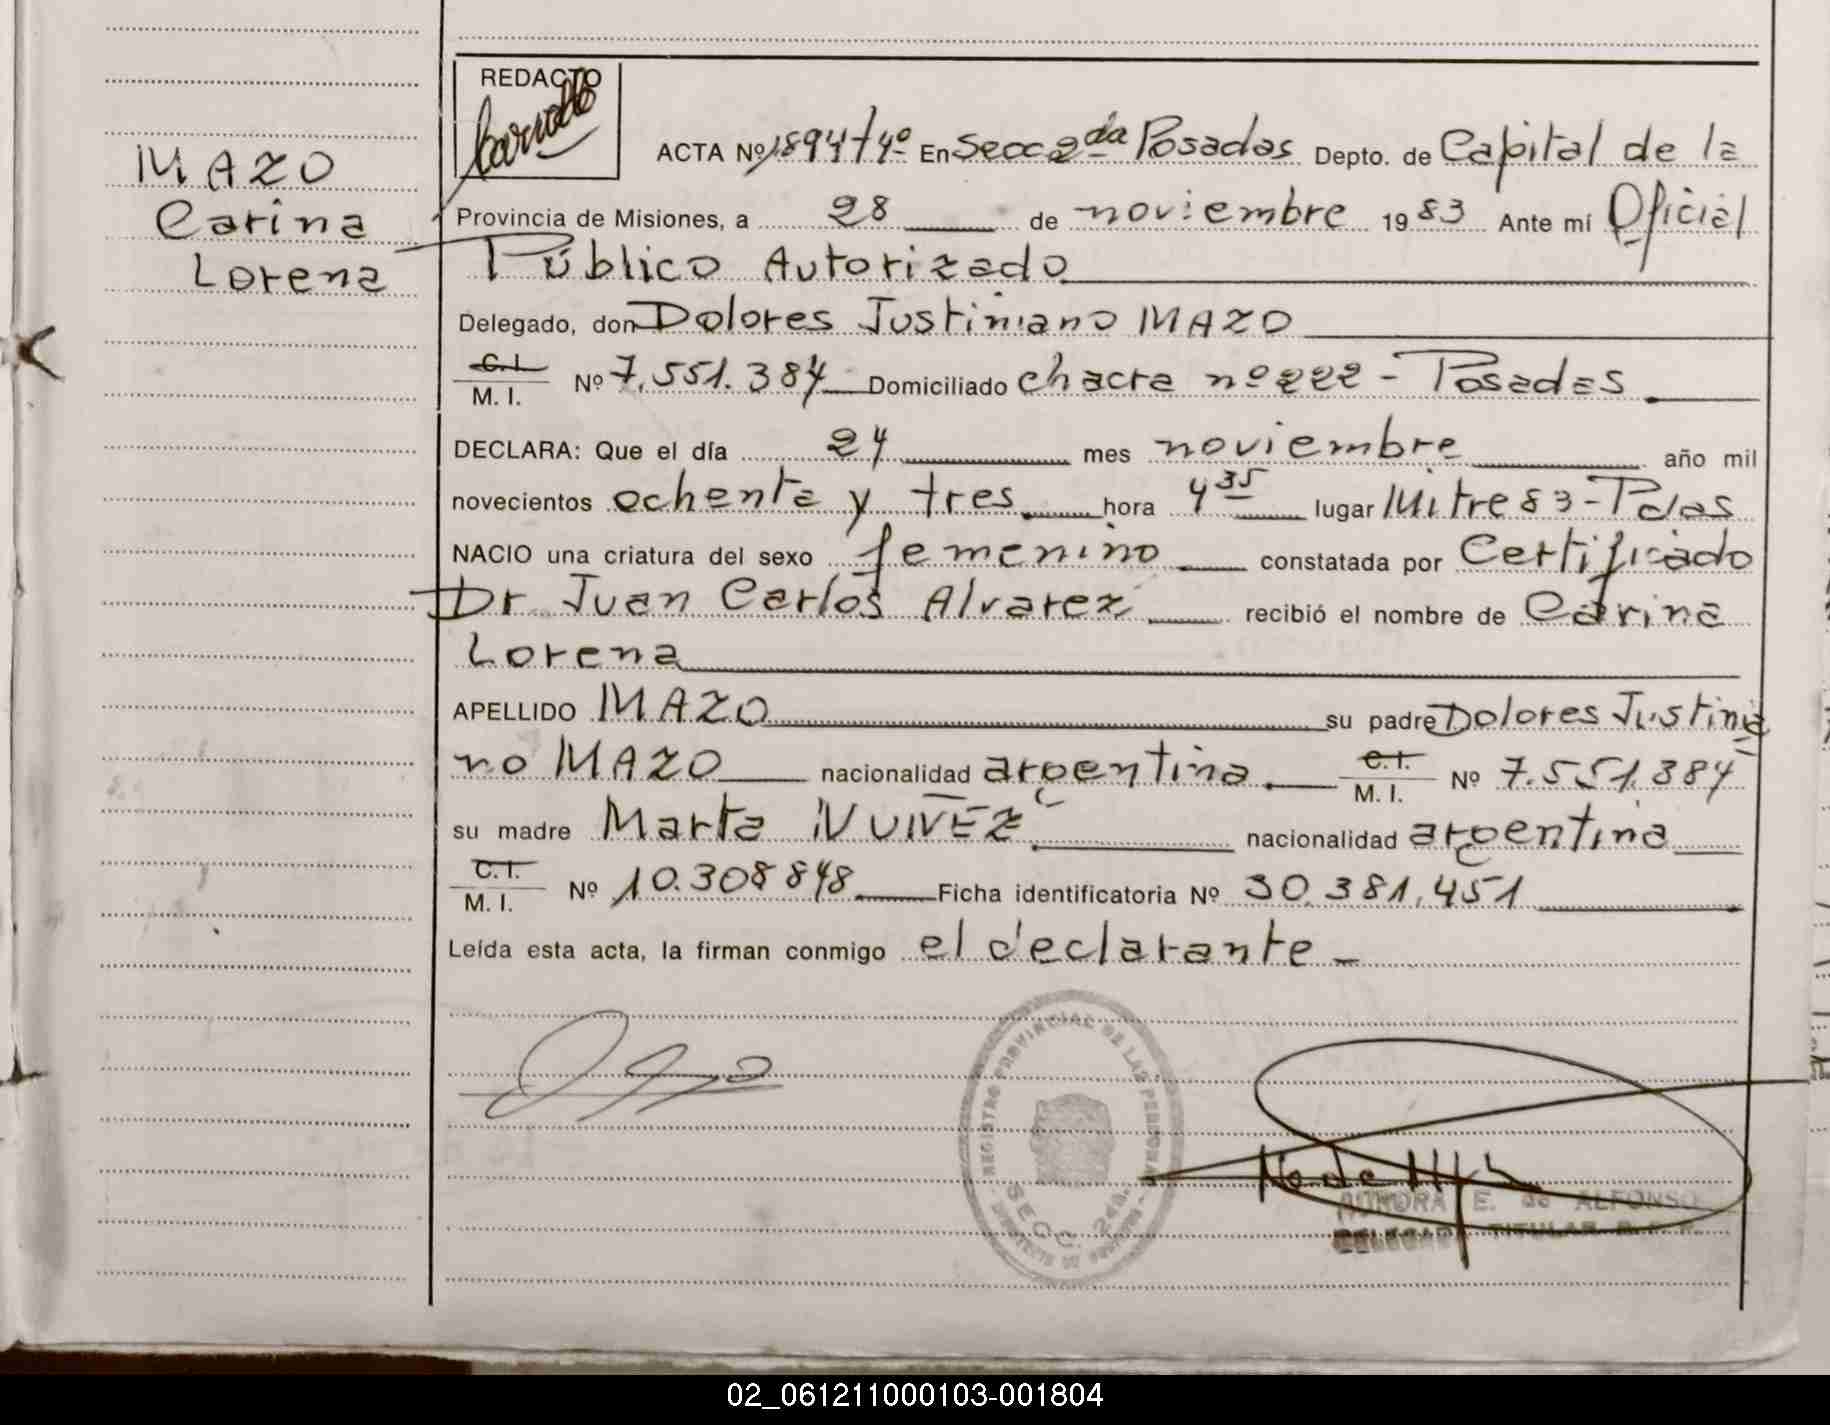 REDACTO
MAZO
Carina
Lorena
ACTA Nº 1894 t 4º En Secc 2da Posadas Depto. de Capital de la
Provincia de Misiones, a 28 de noviembre 1983 Ante mí Oficial
Público Autorizado
Delegado, don Dolores Justiniano MAZO
C.I.
M. I. Nº 7.551.384 Domiciliado chacra nº 222 - Posadas
DECLARA: Que el día 24 mes noviembre año mil
novecientos ochenta y tres hora 4 35 lugar Mitre 83 - Pdas
NACIO una criatura del sexo femenino constatada por Certificado
Dr Juan Carlos Alvarez recibió el nombre de Carina
Lorena
APELLIDO MAZO su padre Dolores Justinia
no MAZO nacionalidad argentina C.I. M. I. Nº 7.551.384
su madre Marta NUÑEZ nacionalidad argentina
C.I.
M. I. Nº 10.308 848 Ficha identificatoria Nº 30.381.451
Leída esta acta, la firman conmigo el declarante -
REGISTRO PROVINCIAL DE LAS PERSONAS
SECC. 2da.
AURORA E. de ALFONSO
DELEGADA TITULAR
02_061211000103-001804